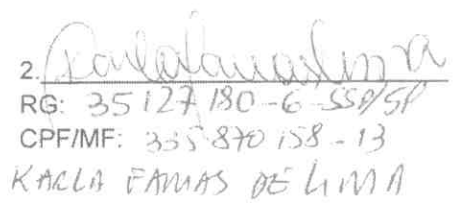 2.
RG: 35127180-6-SSP/SP
CPF/MF: 335 870 158-13
KARLA FAMAS DE LIMA